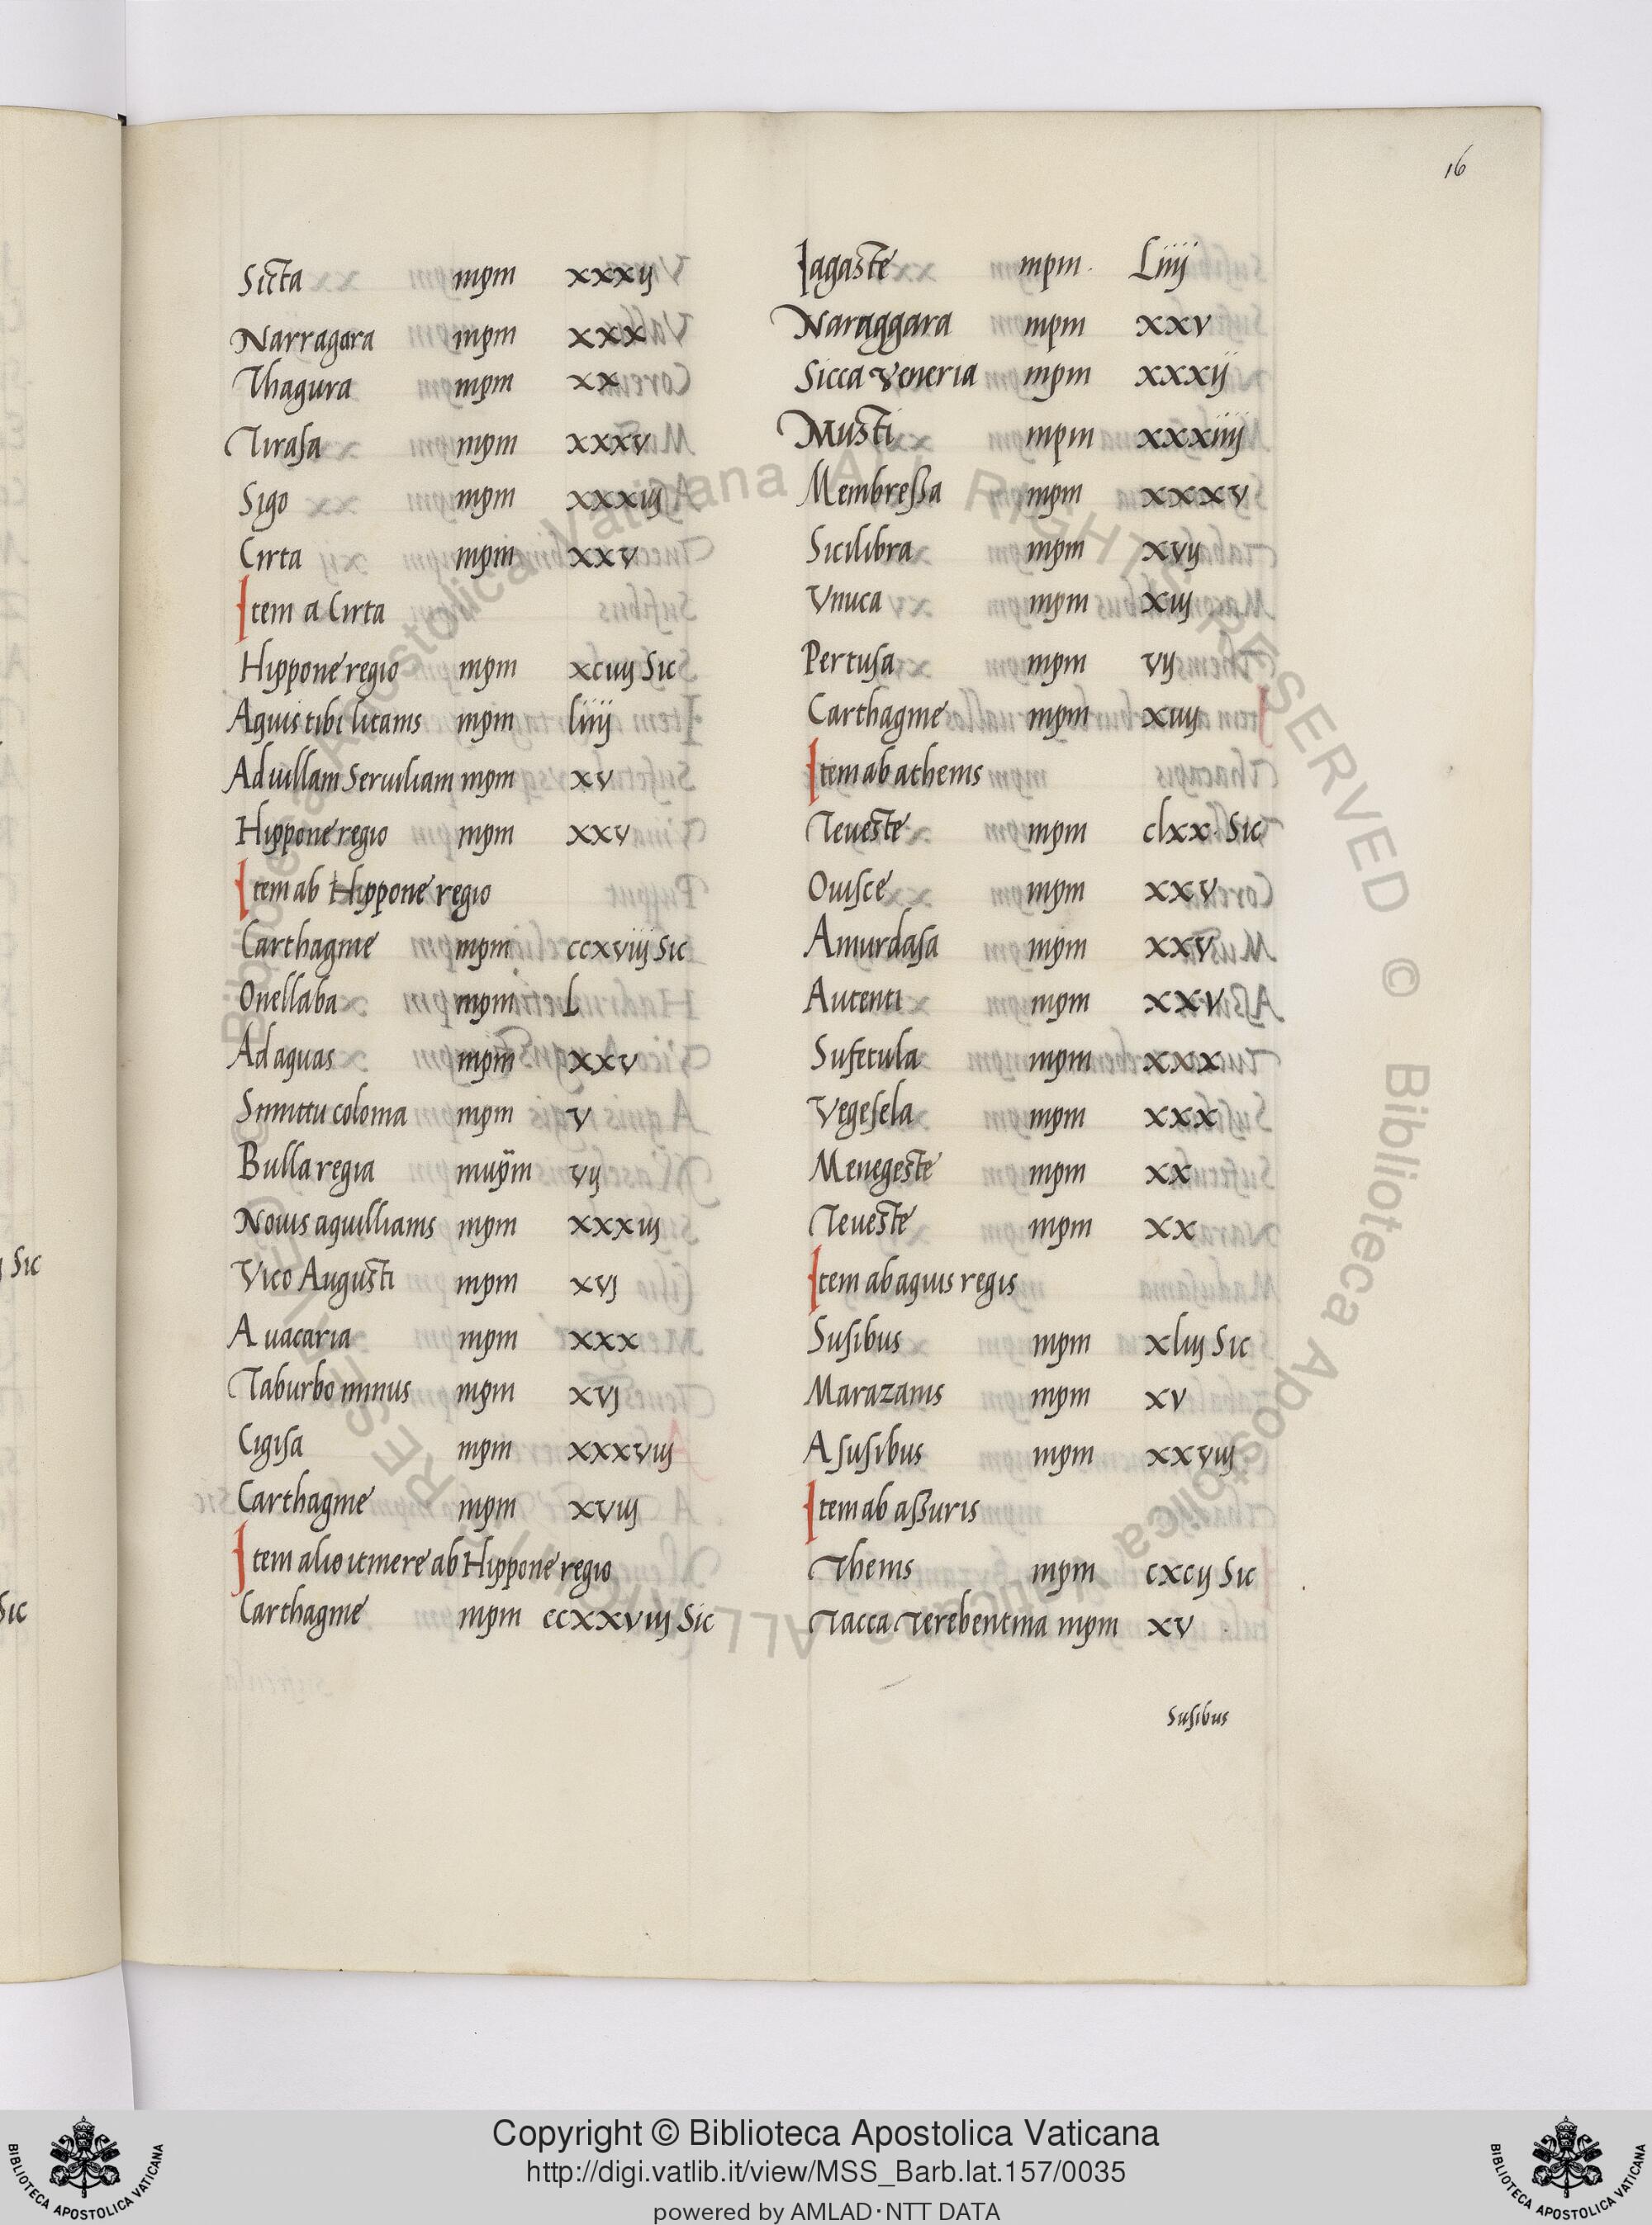 16
Sicta mpm xxxij
Narragara mpm xxx
Thagura mpm xx
Tirasa mpm xxxv
Sigo mpm xxxiij
Cirta mpm xxv
Item a Cirta
Hippone regio mpm xciiij Sic
Aquis tibilitanis mpm liiij
Ad uillam Seruiliam mpm xv
Hippone regio mpm xxv
Item ab Hippone regio
Carthagine mpm ccxviij Sic
Onellaba mpm L
Ad aquas mpm xxv
Simittu colonia mpm v
Bulla regia muijm vij
Nouis aquillianis mpm xxxiij
Vico Augusti mpm xvj
A uacaria mpm xxx
Taburbo minus mpm xvj
Cigisa mpm xxxviij
Carthagine mpm xviij
Item alio itinere ab Hippone regio
Carthagine mpm ccxxviij Sic
Iagaste mpm Liiij
Naraggara mpm xxv
Sicca Veneria mpm xxxij
Musti mpm xxxiiij
Membressa mpm xxxv
Sicilibra mpm xvij
Vnuca mpm xiij
Pertusa mpm vij
Carthagine mpm xiiij
Item ab athenis
Teueste mpm clxx Sic
Ouisce mpm xxv
Amurdasa mpm xxv
Autenti mpm xxv
Sufetula mpm xxx
Vegesela mpm xxx
Menegeste mpm xx
Teueste mpm xx
Item ab aquis regis
Susibus mpm xliij Sic
Marazanis mpm xv
A susibus mpm xxviij
Item ab assuris
Thenis mpm cxcij Sic
Tacca Terebentina mpm xv
Susibus
j Sic
Sic
© Biblioteca Apostolica Vaticana ALL RIGHTS RESERVED © Biblioteca Apostolica Vaticana ALL RIGHTS RESERVED
Copyright © Biblioteca Apostolica Vaticana
http://digi.vatlib.it/view/MSS_Barb.lat.157/0035
powered by AMLAD·NTT DATA
BIBLIOTECA APOSTOLICA VATICANA
BIBLIOTECA APOSTOLICA VATICANA